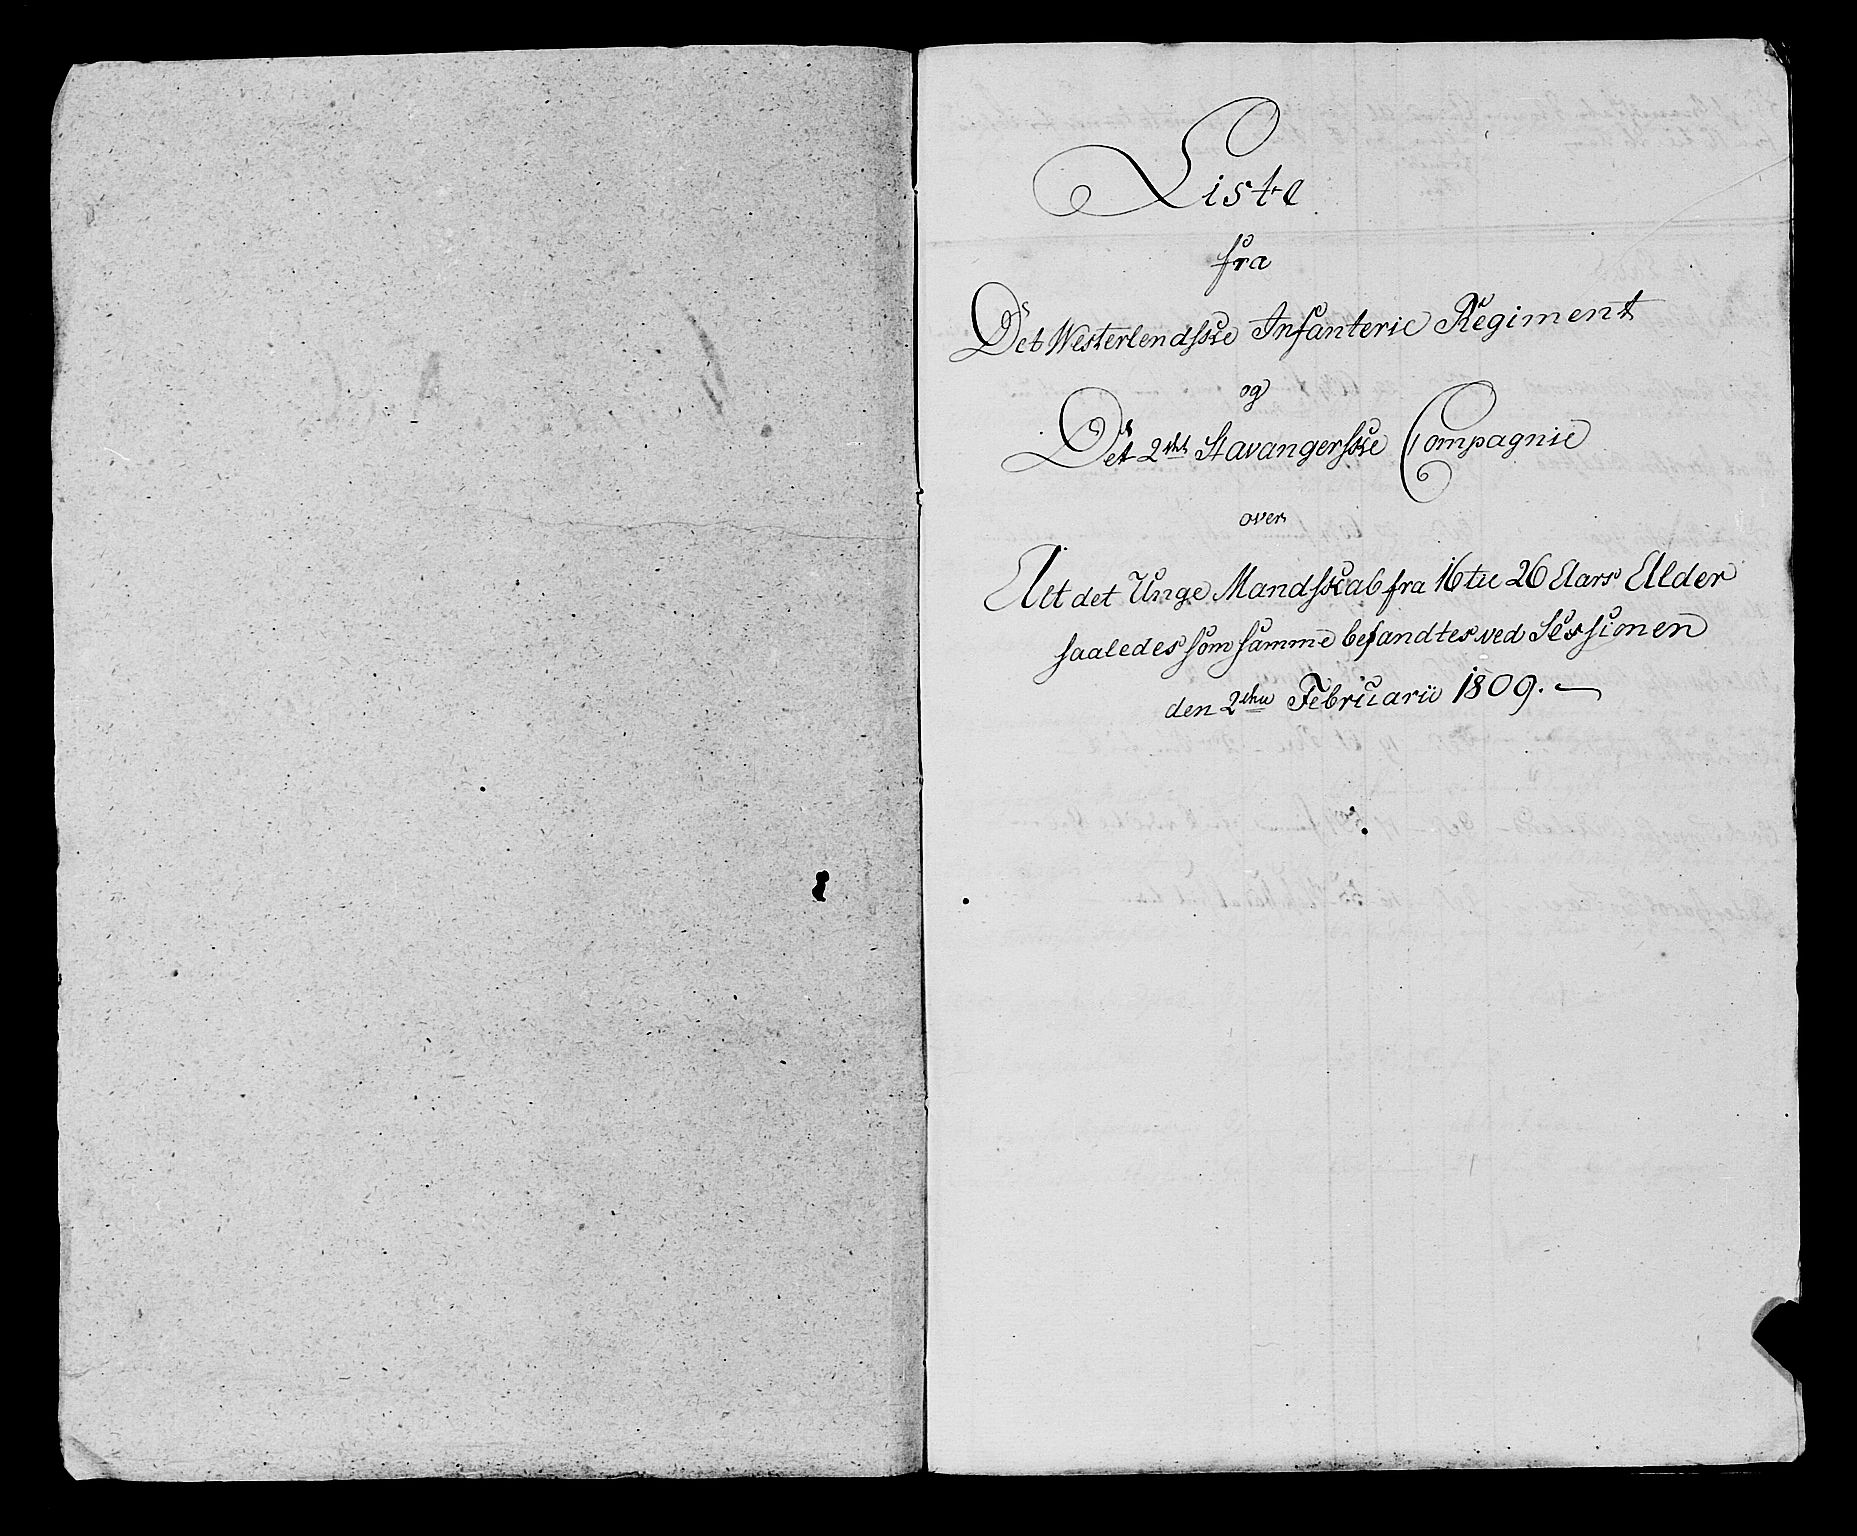 Liste
fra
Det Westerlendsske Infanterie Regiment
og
Det 2det Stavangerske Compagnie
over
Alt det Unge Mandskab fra 16 til 26 Aars Alder
saaledes som samme befandtes ved Sessionen
den 2den Februarii 1809.